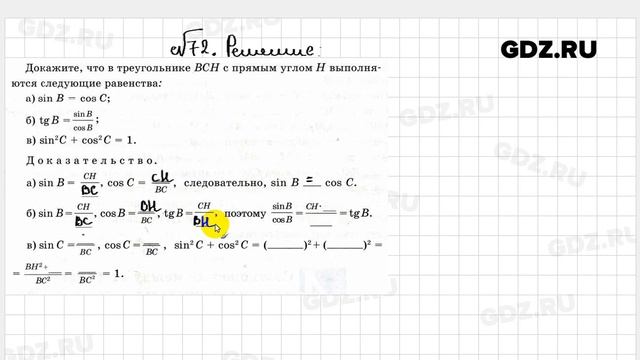 №72. Решение:
GDZ.RU
Докажите, что в треугольнике BCH с прямым углом H выполня-
ются следующие равенства:
а) sin B = cos C;
б) tg B = sinB/cosB;
в) sin²C + cos²C = 1.
Доказательство.
а) sin B = CH/BC, cos C = CH/BC, следовательно, sin B = cos C.
б) sin B = CH/BC, cos B = BH/BC, tg B = CH/BH, поэтому sinB/cosB = CH·__/__ = tg B.
в) sin C = __/BC, cos C = __/BC, sin²C + cos²C = (____)² + (____)² =
= BH²+__/BC² = __/BC² = 1.